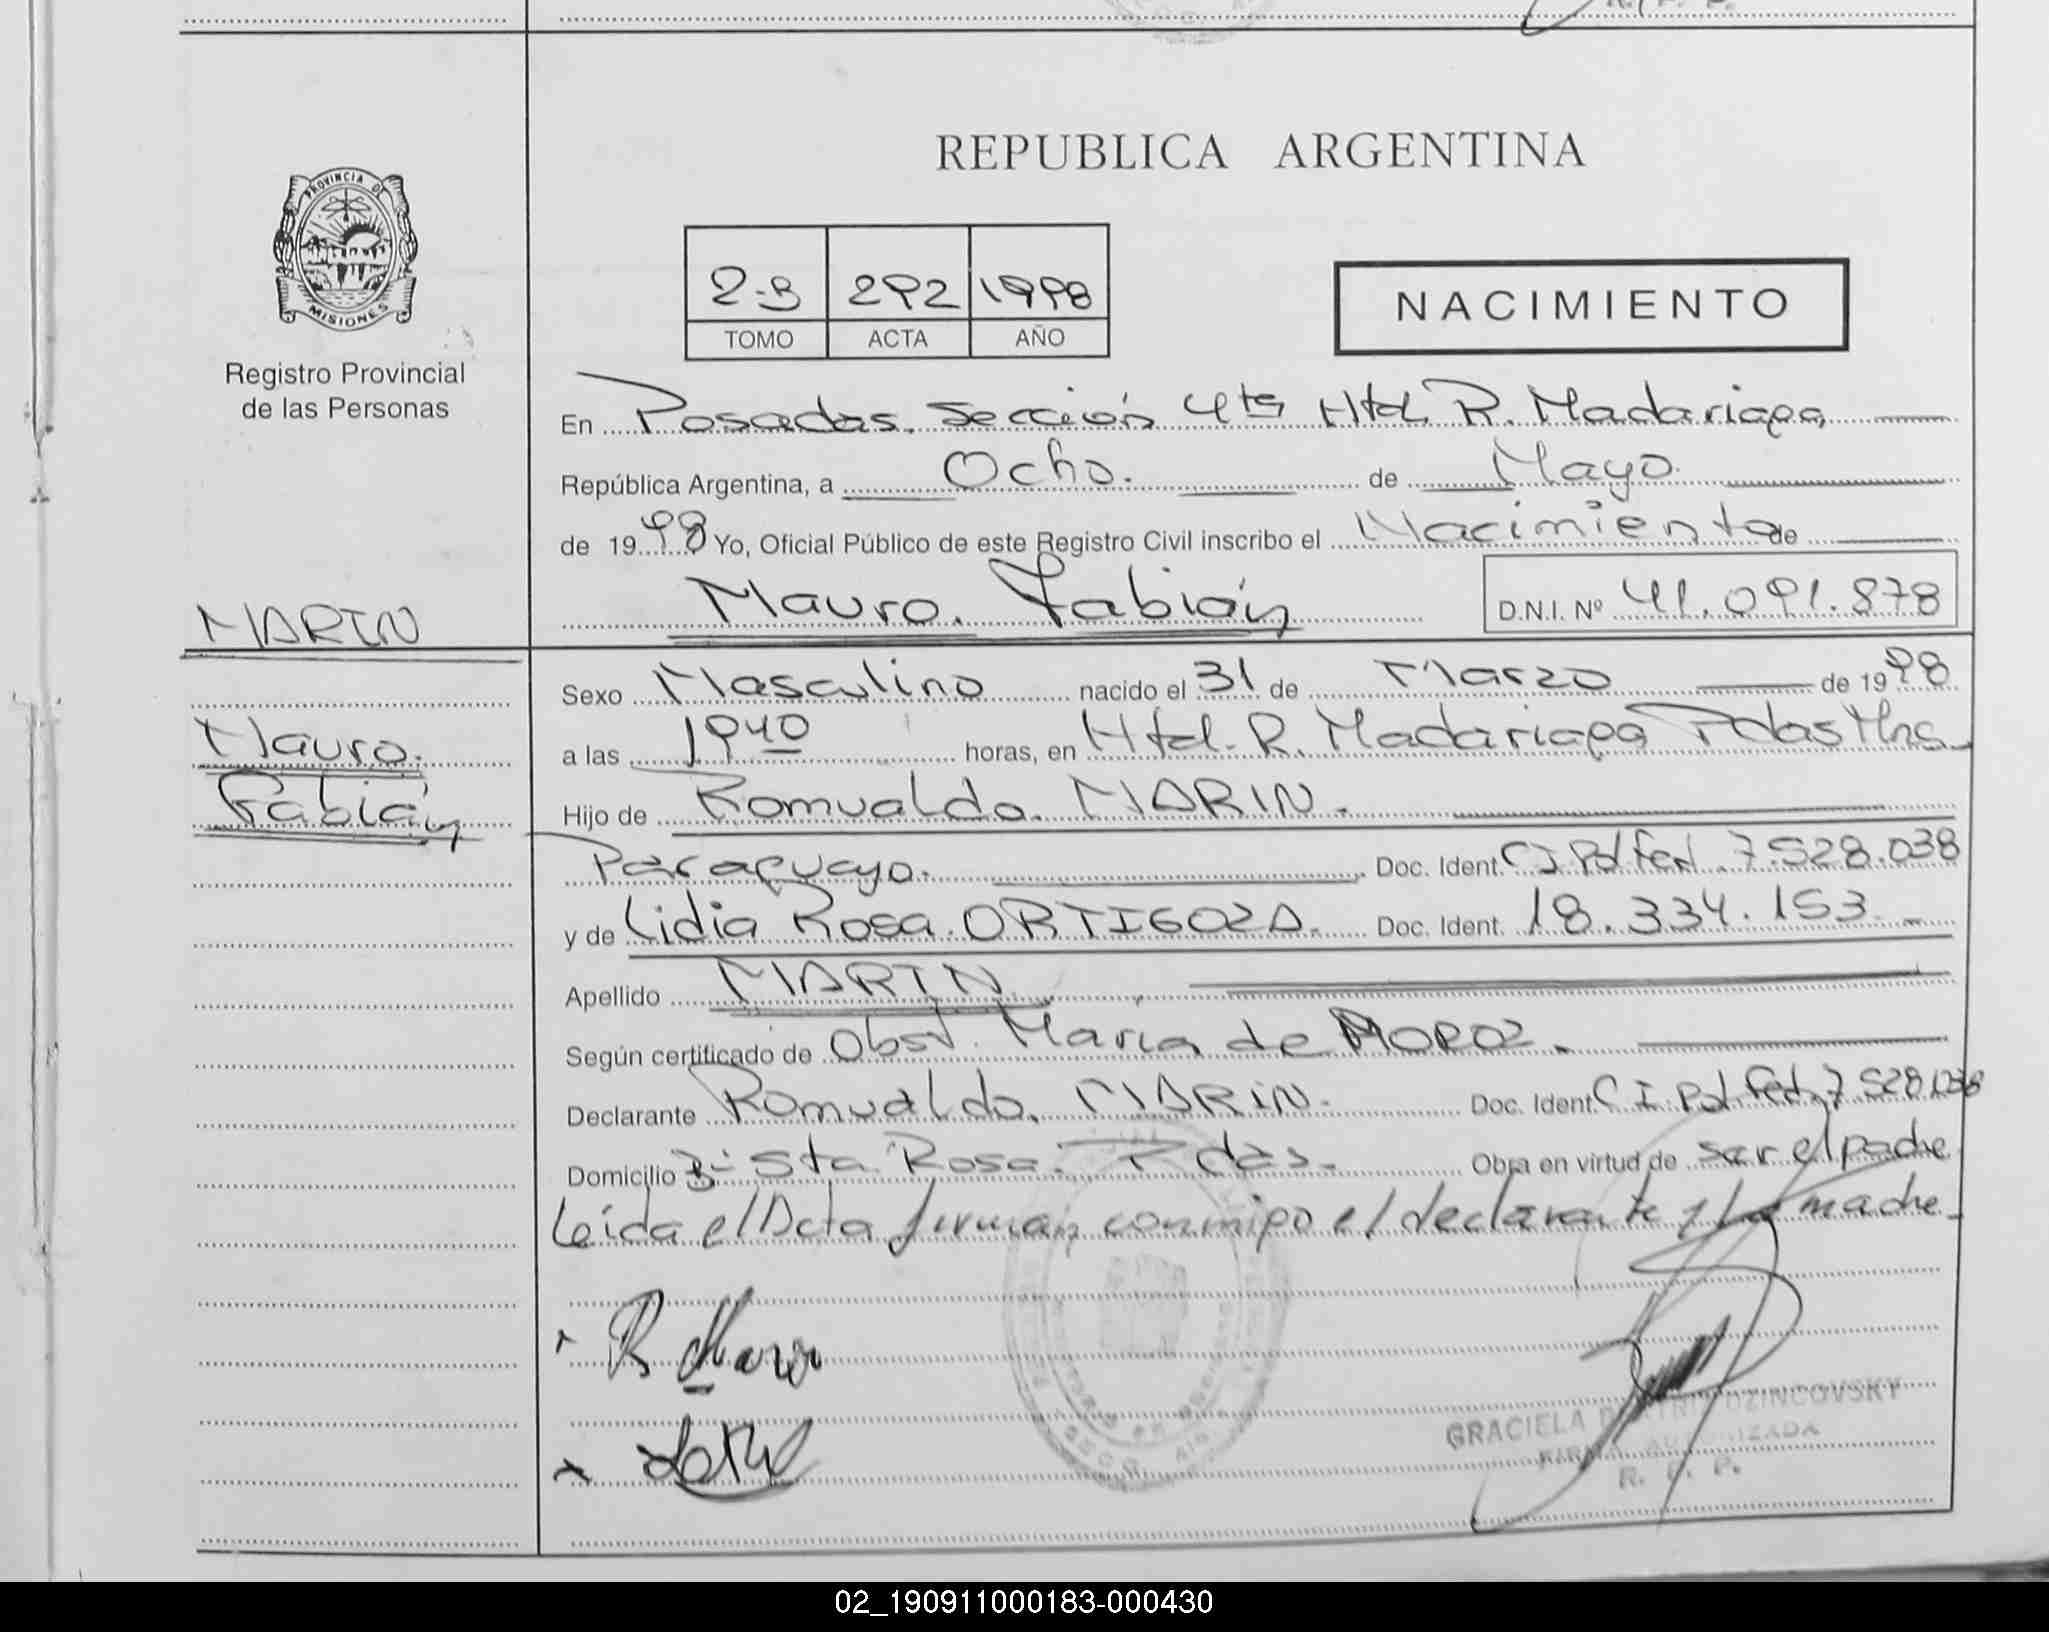 PROVINCIA DE
MISIONES
Registro Provincial
de las Personas
REPUBLICA ARGENTINA
2-B 292 1998
TOMO ACTA AÑO
NACIMIENTO
En Posadas. Sección 4ta Htal. R. Madariaga,
República Argentina, a Ocho. de Mayo.
de 1998 Yo, Oficial Público de este Registro Civil inscribo el Nacimiento de
Mauro. Fabián
D.N.I. Nº 41.091.878
MARIN
Mauro.
Fabián
Sexo Masculino nacido el 31 de Marzo de 1998
a las 1940 horas, en Htal. R. Madariaga Pdas Mns.
Hijo de Romualdo. MARIN.
Paraguayo. Doc. Ident. CI Pol Fed. 7.528.038
y de Lidia Rosa. ORTIGOZA. Doc. Ident. 18.334.153.
Apellido MARIN
Según certificado de Obst. María de MOROZ.
Declarante Romualdo. MARIN. Doc. Ident. C I Pol Fed. 7 528.038
Domicilio Bº Sta. Rosa. Pdas. Obra en virtud de ser el padre
Leída el Acta firman conmigo el declarante y la madre
R Marin
GRACIELA BEATRIZ DZINCOVSKY
FIRMA AUTORIZADA
R. P. P.
02_190911000183-000430